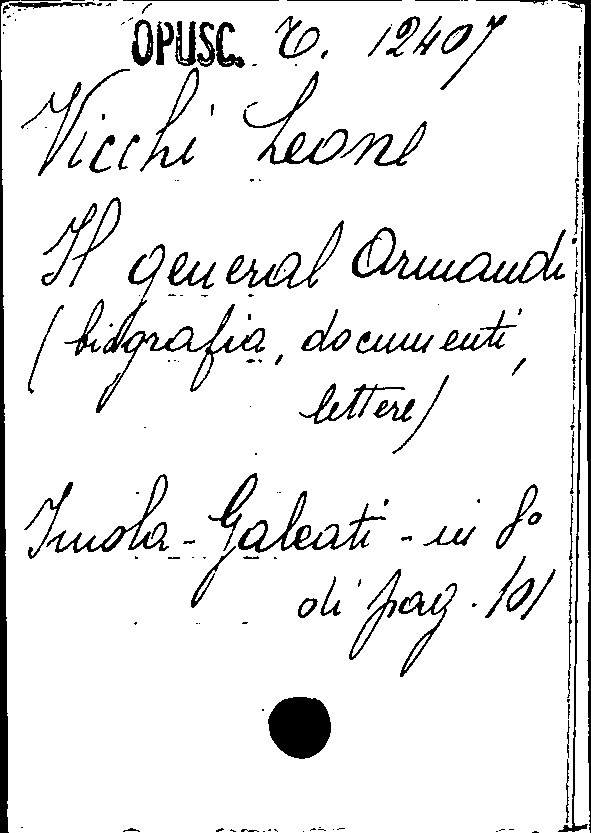 OPUSC. C. 12407
Vicchi Leone
Il general Armandi
(biografia, documenti,
lettere)
Imola - Galeati - in 8°
di pag. 101